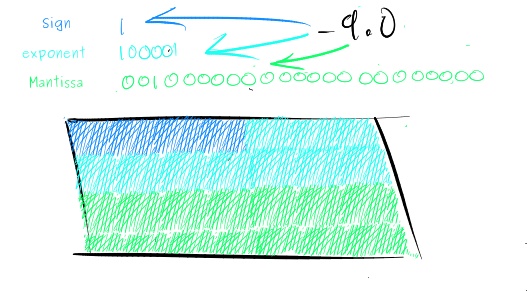 Sign 1 -9.0
exponent 100001
Mantissa 00100000000000000000000